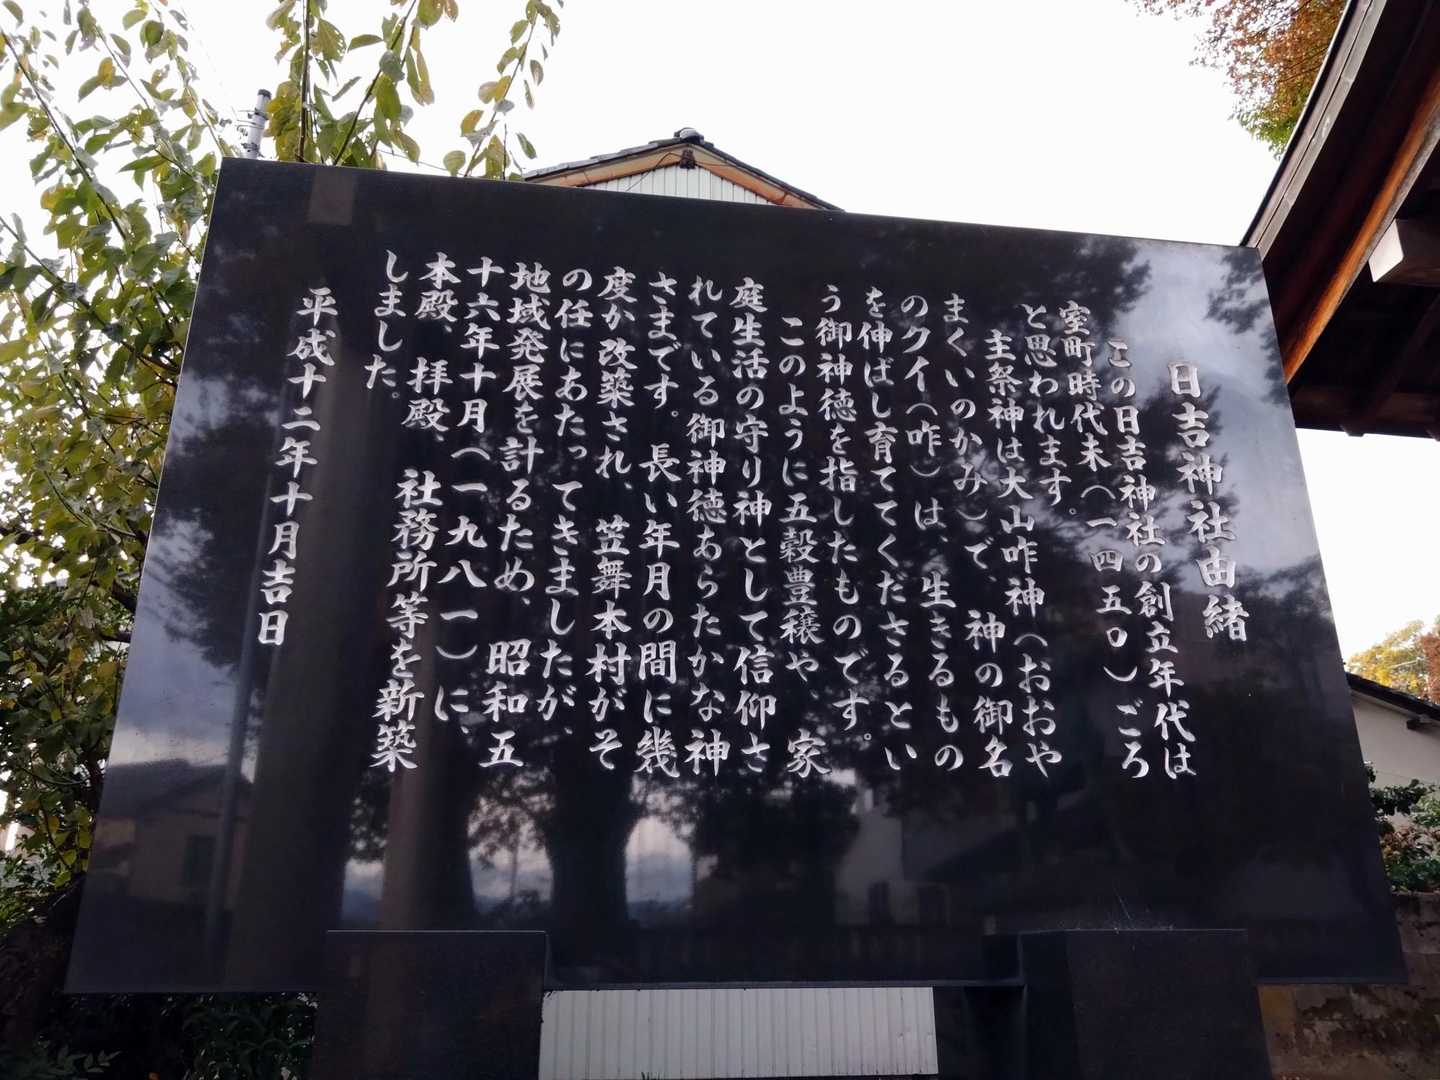 日吉神社由緒
この日吉神社の創立年代は
室町時代末（一四五〇）ごろ
と思われます。
主祭神は大山咋神（おおや
まくいのかみ）で、神の御名
のクイ（咋）は、生きるもの
を伸ばし育ててくださるとい
う御神徳を指したものです。
このように五穀豊穣や、家
庭生活の守り神として信仰さ
れている御神徳あらたかな神
さまです。長い年月の間に幾
度か改築され、笠舞本村がそ
の任にあたってきましたが、
地域発展を計るため、昭和五
十六年十月（一九八一）に、
本殿、拝殿、社務所等を新築
しました。
平成十二年十月吉日